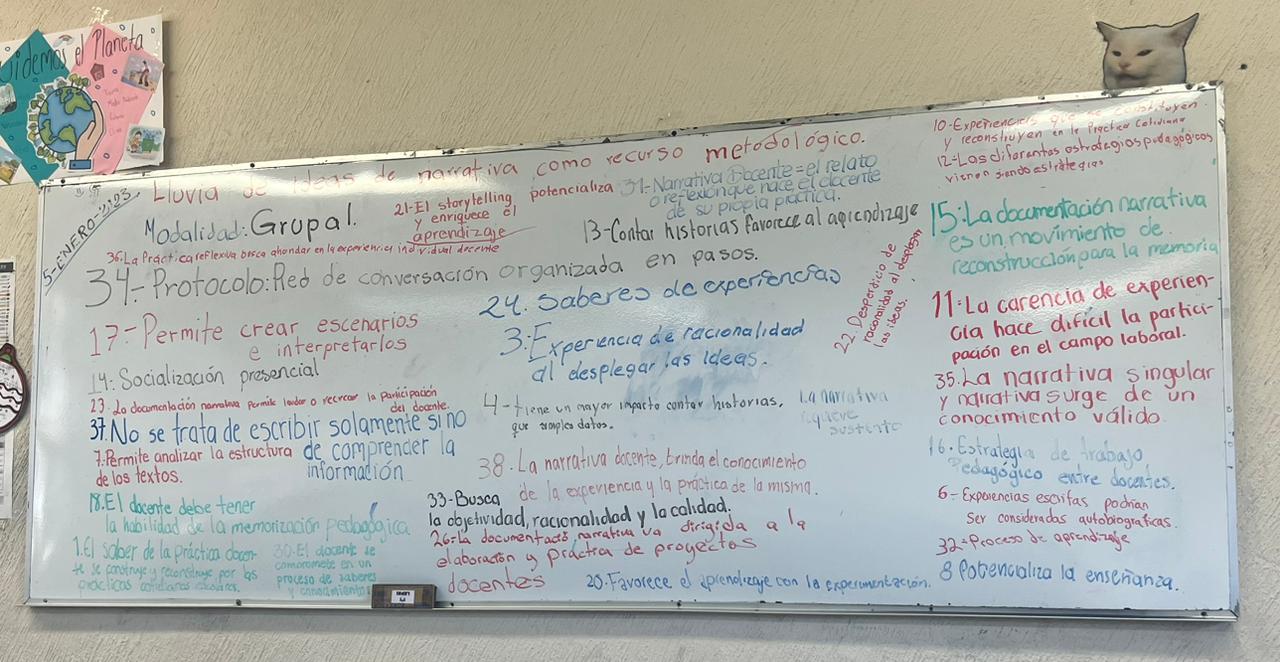 Cuidemos el Planeta
5-ENERO-2123.
Lluvia de ideas de narrativa como recurso metodológico.
Modalidad: Grupal.
21-El storytelling
y enriquece el
aprendizaje
potencializa
31-Narrativa Docente = el relato
o reflexión que hace el docente
de su propia práctica.
13-Contar historias favorece al aprendizaje
36.La Practica reflexiva busca ahondar en la experiencia individual docente
34-Protocolo: Red de conversación organizada en pasos.
17-Permite crear escenarios
e interpretarlos
14-Socialización presencial
23-La documentación narrativa permite
o recrear la participación
del docente.
37.No se trata de escribir solamente sino
de comprender la
información
7.Permite analizar la estructura
de los textos.
18.El docente debe tener
la habilidad de la memorización pedagógica
1.El saber de la práctica docen-
te se construye y reconstruye por las
prácticas cotidianas escolares.
30-El docente se
compromete en un
proceso de saberes
y conocimientos
24. Saberes de experiencias
3.Experiencia de racionalidad
al desplegar las Ideas.
22.Desperdicio de
racionalidad al desplegar
las ideas.
4-tiene un mayor impacto contar historias,
que simples datos.
La narrativa
requiere
sustento
38.La narrativa docente, brinda el conocimiento
de la experiencia y la práctica de la misma.
33-Busca
la objetividad, racionalidad y la calidad.
26-La documentació narrativa va dirigida a la
elaboración y práctica de proyectos
docentes
20.Favorece el aprendizaje con la experimentación.
10-Experiencias que se constituyen
y reconstruyen en la Practica Cotidiana
12-Las diferentes estrategias pedagógicas
vienen siendo estrategias
15:La documentación narrativa
es un movimiento de
reconstrucción para la memoria
11-La carencia de experien-
cia hace difícil la partici-
pación en el campo laboral.
35.La narrativa singular
y narrativa surge de un
conocimiento válido.
16.Estrategia de trabajo
Pedagógico entre docentes.
6-Experiencias escritas podrian
Ser consideradas autobiograficas.
32-Proceso de aprendizaje
8 Potencializa la enseñanza.